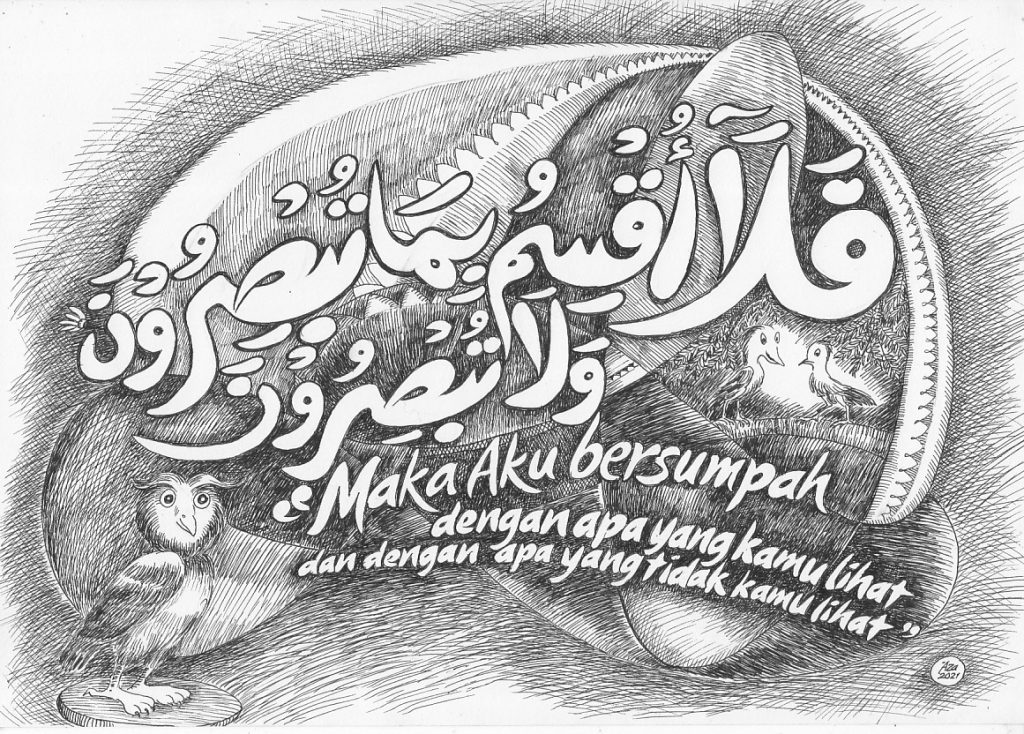 فَلَآ أُقْسِمُ بِمَا تُبْصِرُوْنَ
وَلَا تُبْصِرُوْنَ
"Maka Aku bersumpah
dengan apa yang kamu lihat
dan dengan apa yang tidak kamu lihat"
Aza
2021